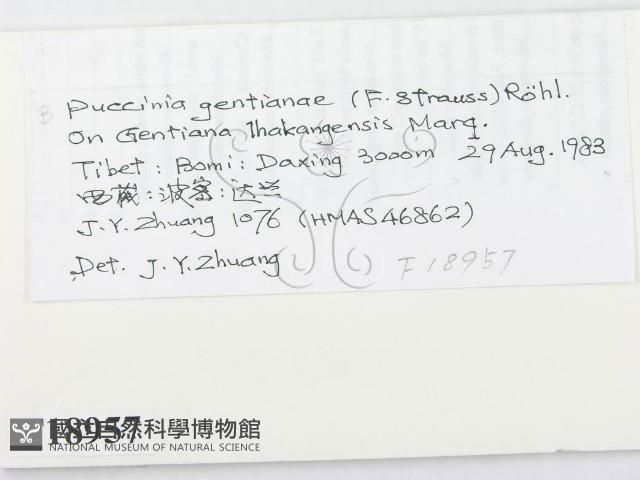 Puccinia gentianae (F. Strauss) Röhl.
On Gentiana lhakangensis Marq.
Tibet: Bomi: Daxing 3000m 29 Aug. 1983
西藏:波密:达兴
J.Y. Zhuang 1076 (HMAS 46862)
Det. J.Y. Zhuang
F18957
18957
國立自然科學博物館
NATIONAL MUSEUM OF NATURAL SCIENCE